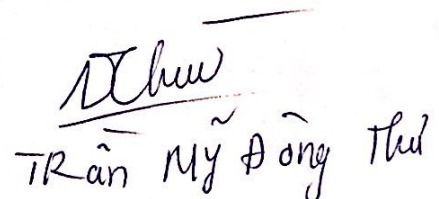 TRần Mỹ Đông Thư